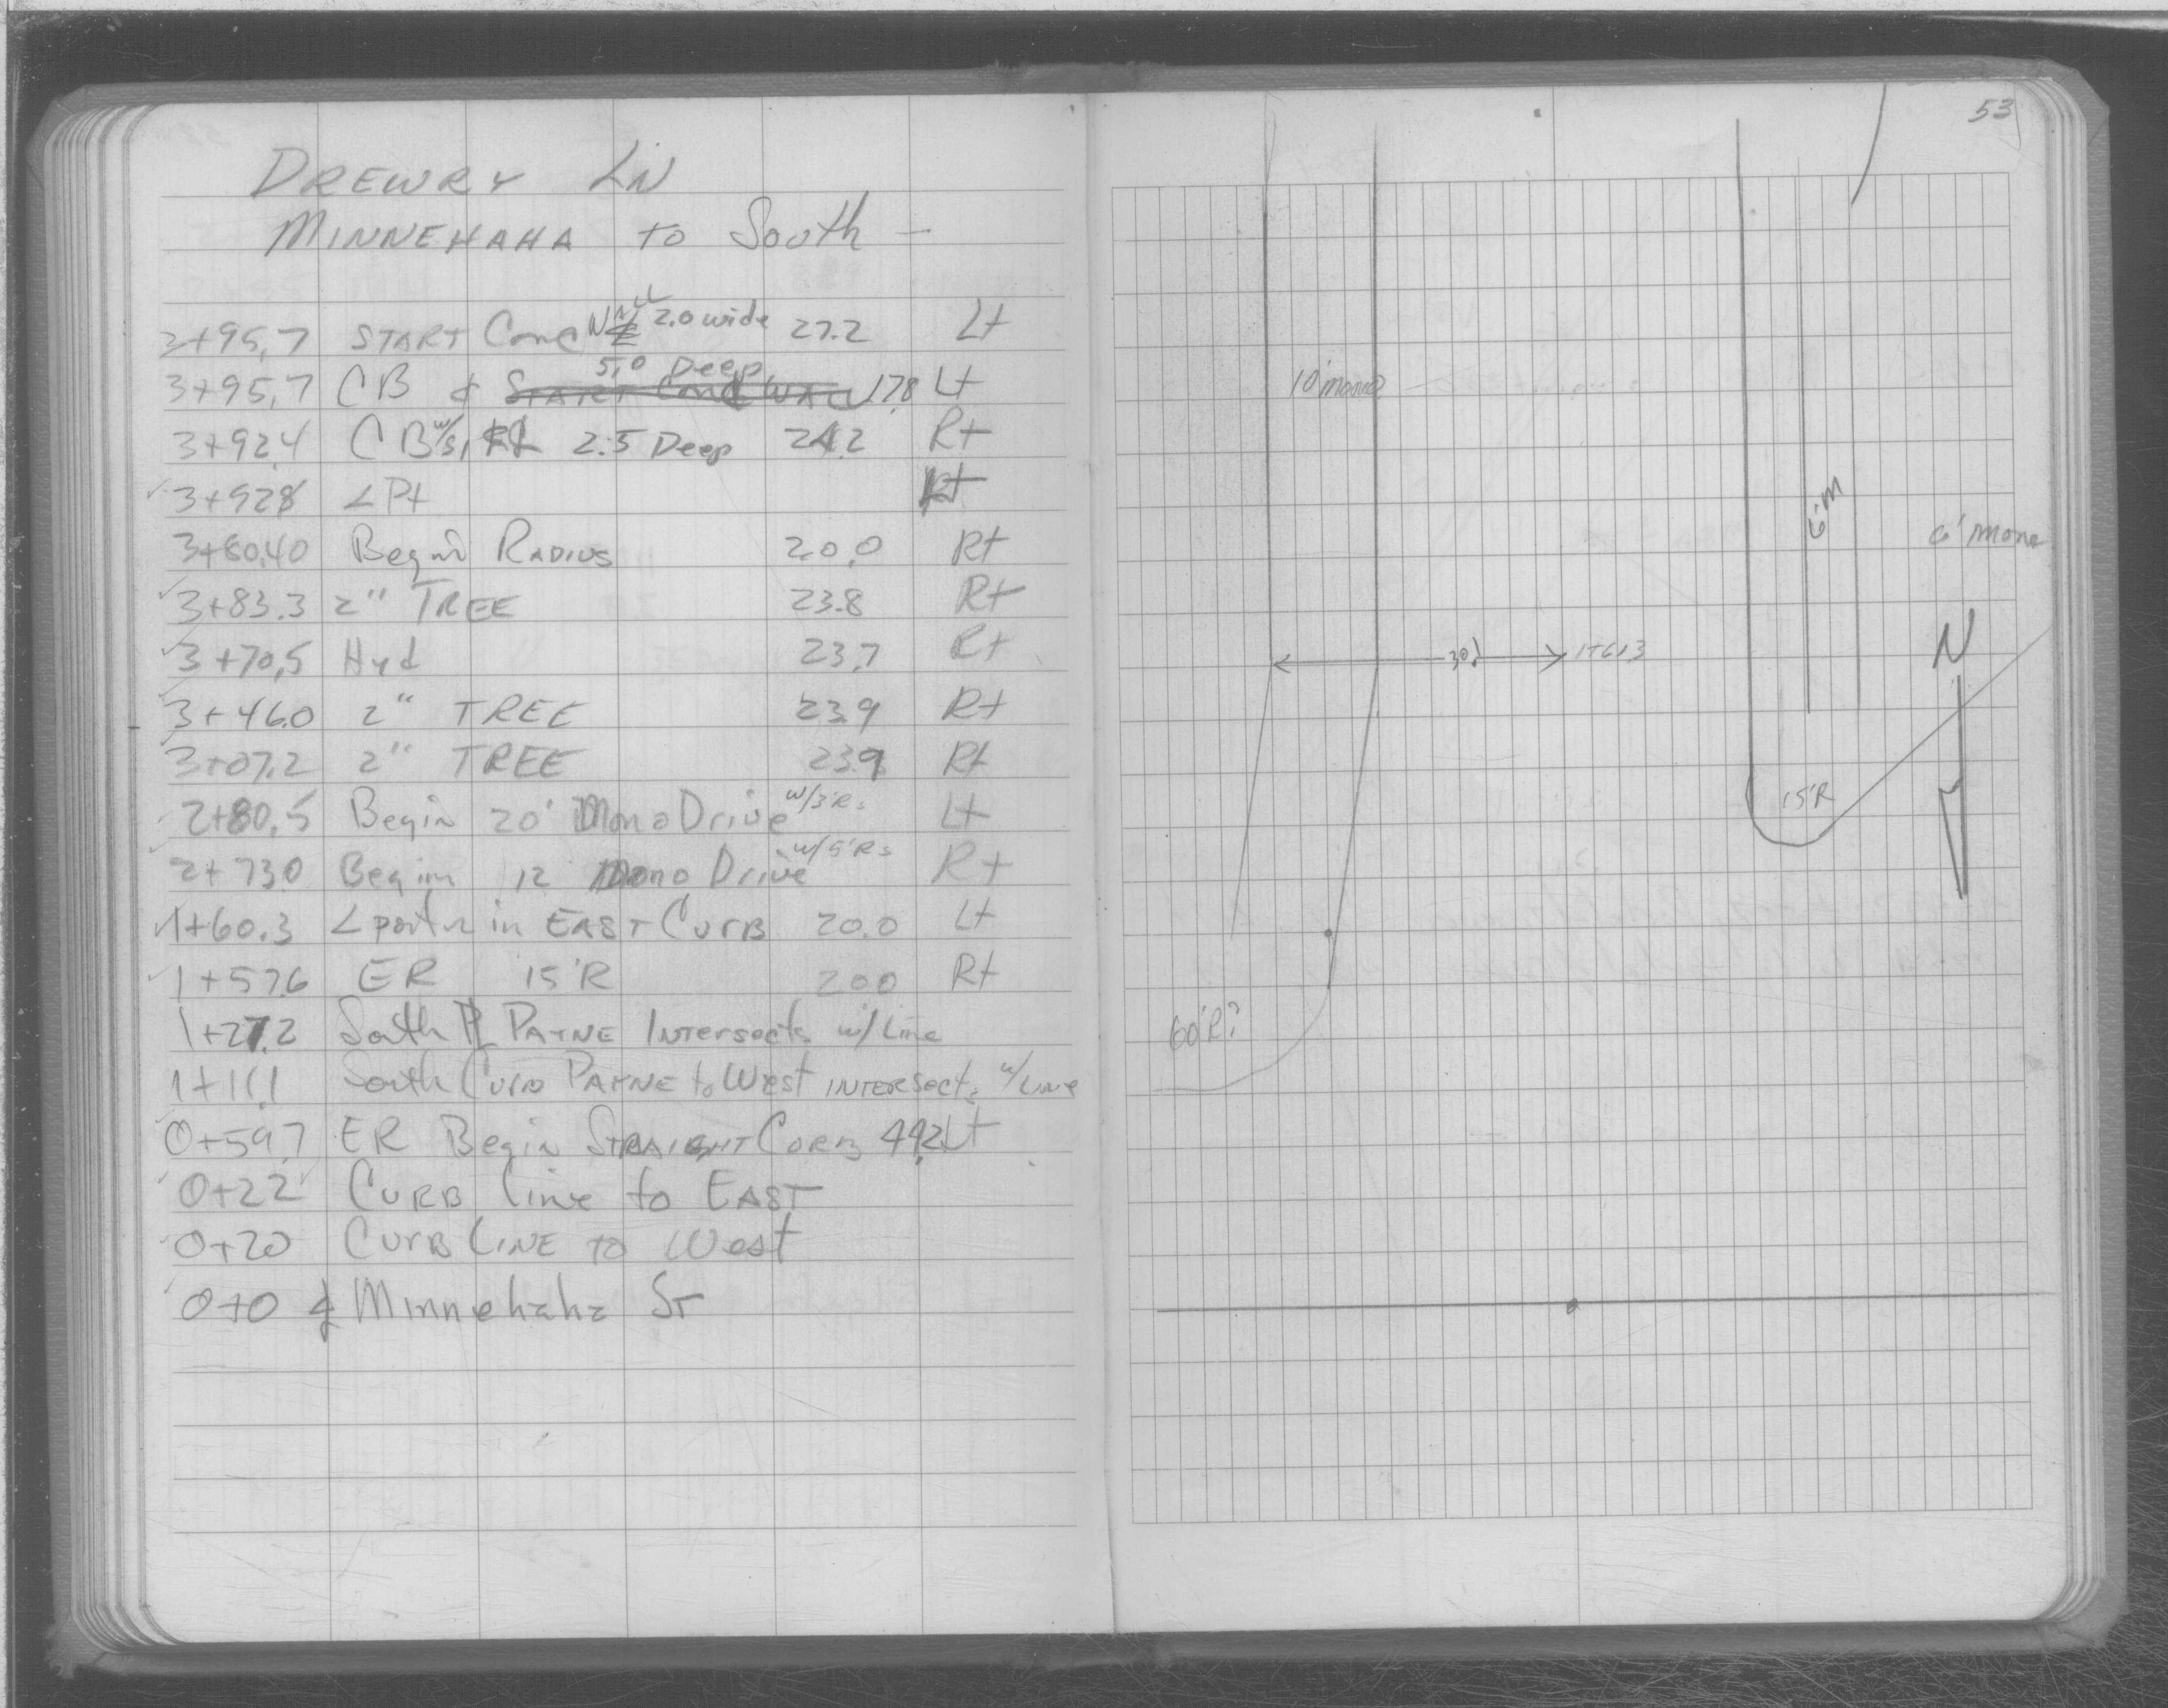 DREWRY LN
MINNEHAHA TO South -
3+95.7 START Conc 2.0 wide 27.2 Lt
5.0 Deep
3+95.7 CB & START Conc WALL 17.8 Lt
3+92.4 CB w/ 2.5 Deep 24.2 Rt
3+92.8 ∠ Pt Rt
3+80.40 Begin RADIUS 20.0 Rt
3+83.3 2" TREE 23.8 Rt
3+70.5 Hyd 23.7 Rt
3+46.0 2" TREE 23.9 Rt
3+07.2 2" TREE 23.9 Rt
2+80.5 Begin 20' Mono Drive w/3'Rs Lt
2+73.0 Begin 12 Mono Drive w/5'Rs Rt
1+60.3 ∠ in EAST CURB 20.0 Lt
1+57.6 ER 15'R 20.0 Rt
1+27.2 South PL PAYNE INTERSECTS w/ Line
1+11.1 South Curb PAYNE to West INTERSECTS w/ LINE
0+59.7 ER Begin STRAIGHT CURB 44.2 Lt
0+22 CURB line to EAST
0+20 CURB LINE TO West
0+0 ℄ Minnehaha ST
53
10' mono
6' M
6' mono
N
30.1
1+61.3
15'R
60'R?